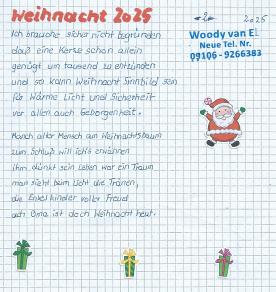 Weihnacht 2025
-2-
2025
Ich brauche sicher nicht begründen
daß eine Kerze schon allein
genügt um tausend zu entzünden
und so kann Weihnacht Sinnbild sein
für Wärme Licht und Sicherheit
vor allen auch Geborgenheit.
Woody van E
Neue Tel. Nr.
09106-9266383
Manch alter Mensch am Weihnachtsbaum
zum Schluß will ich's erwähnen
ihm dünkt sein Leben war ein Traum
man sieht beim Licht die Tränen,
die Enkelkinder voller Freud
ach Oma ist doch Weihnacht heut.